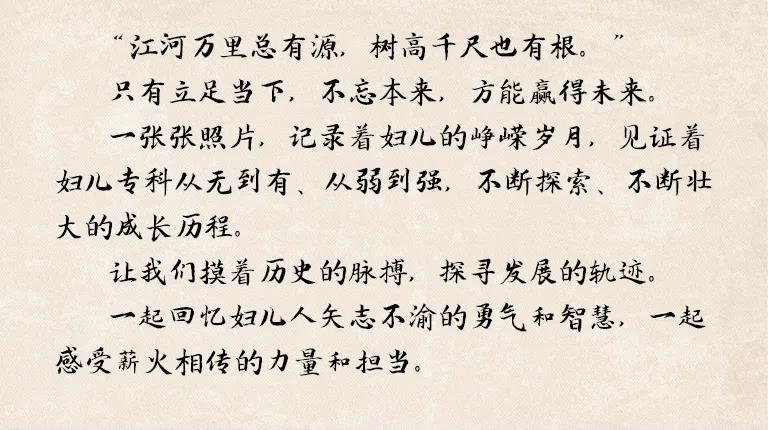 “江河万里总有源，树高千尺也有根。”
只有立足当下，不忘本来，方能赢得未来。
一张张照片，记录着妇儿的峥嵘岁月，见证着
妇儿专科从无到有、从弱到强，不断探索、不断壮
大的成长历程。
让我们摸着历史的脉搏，探寻发展的轨迹。
一起回忆妇儿人矢志不渝的勇气和智慧，一起
感受薪火相传的力量和担当。